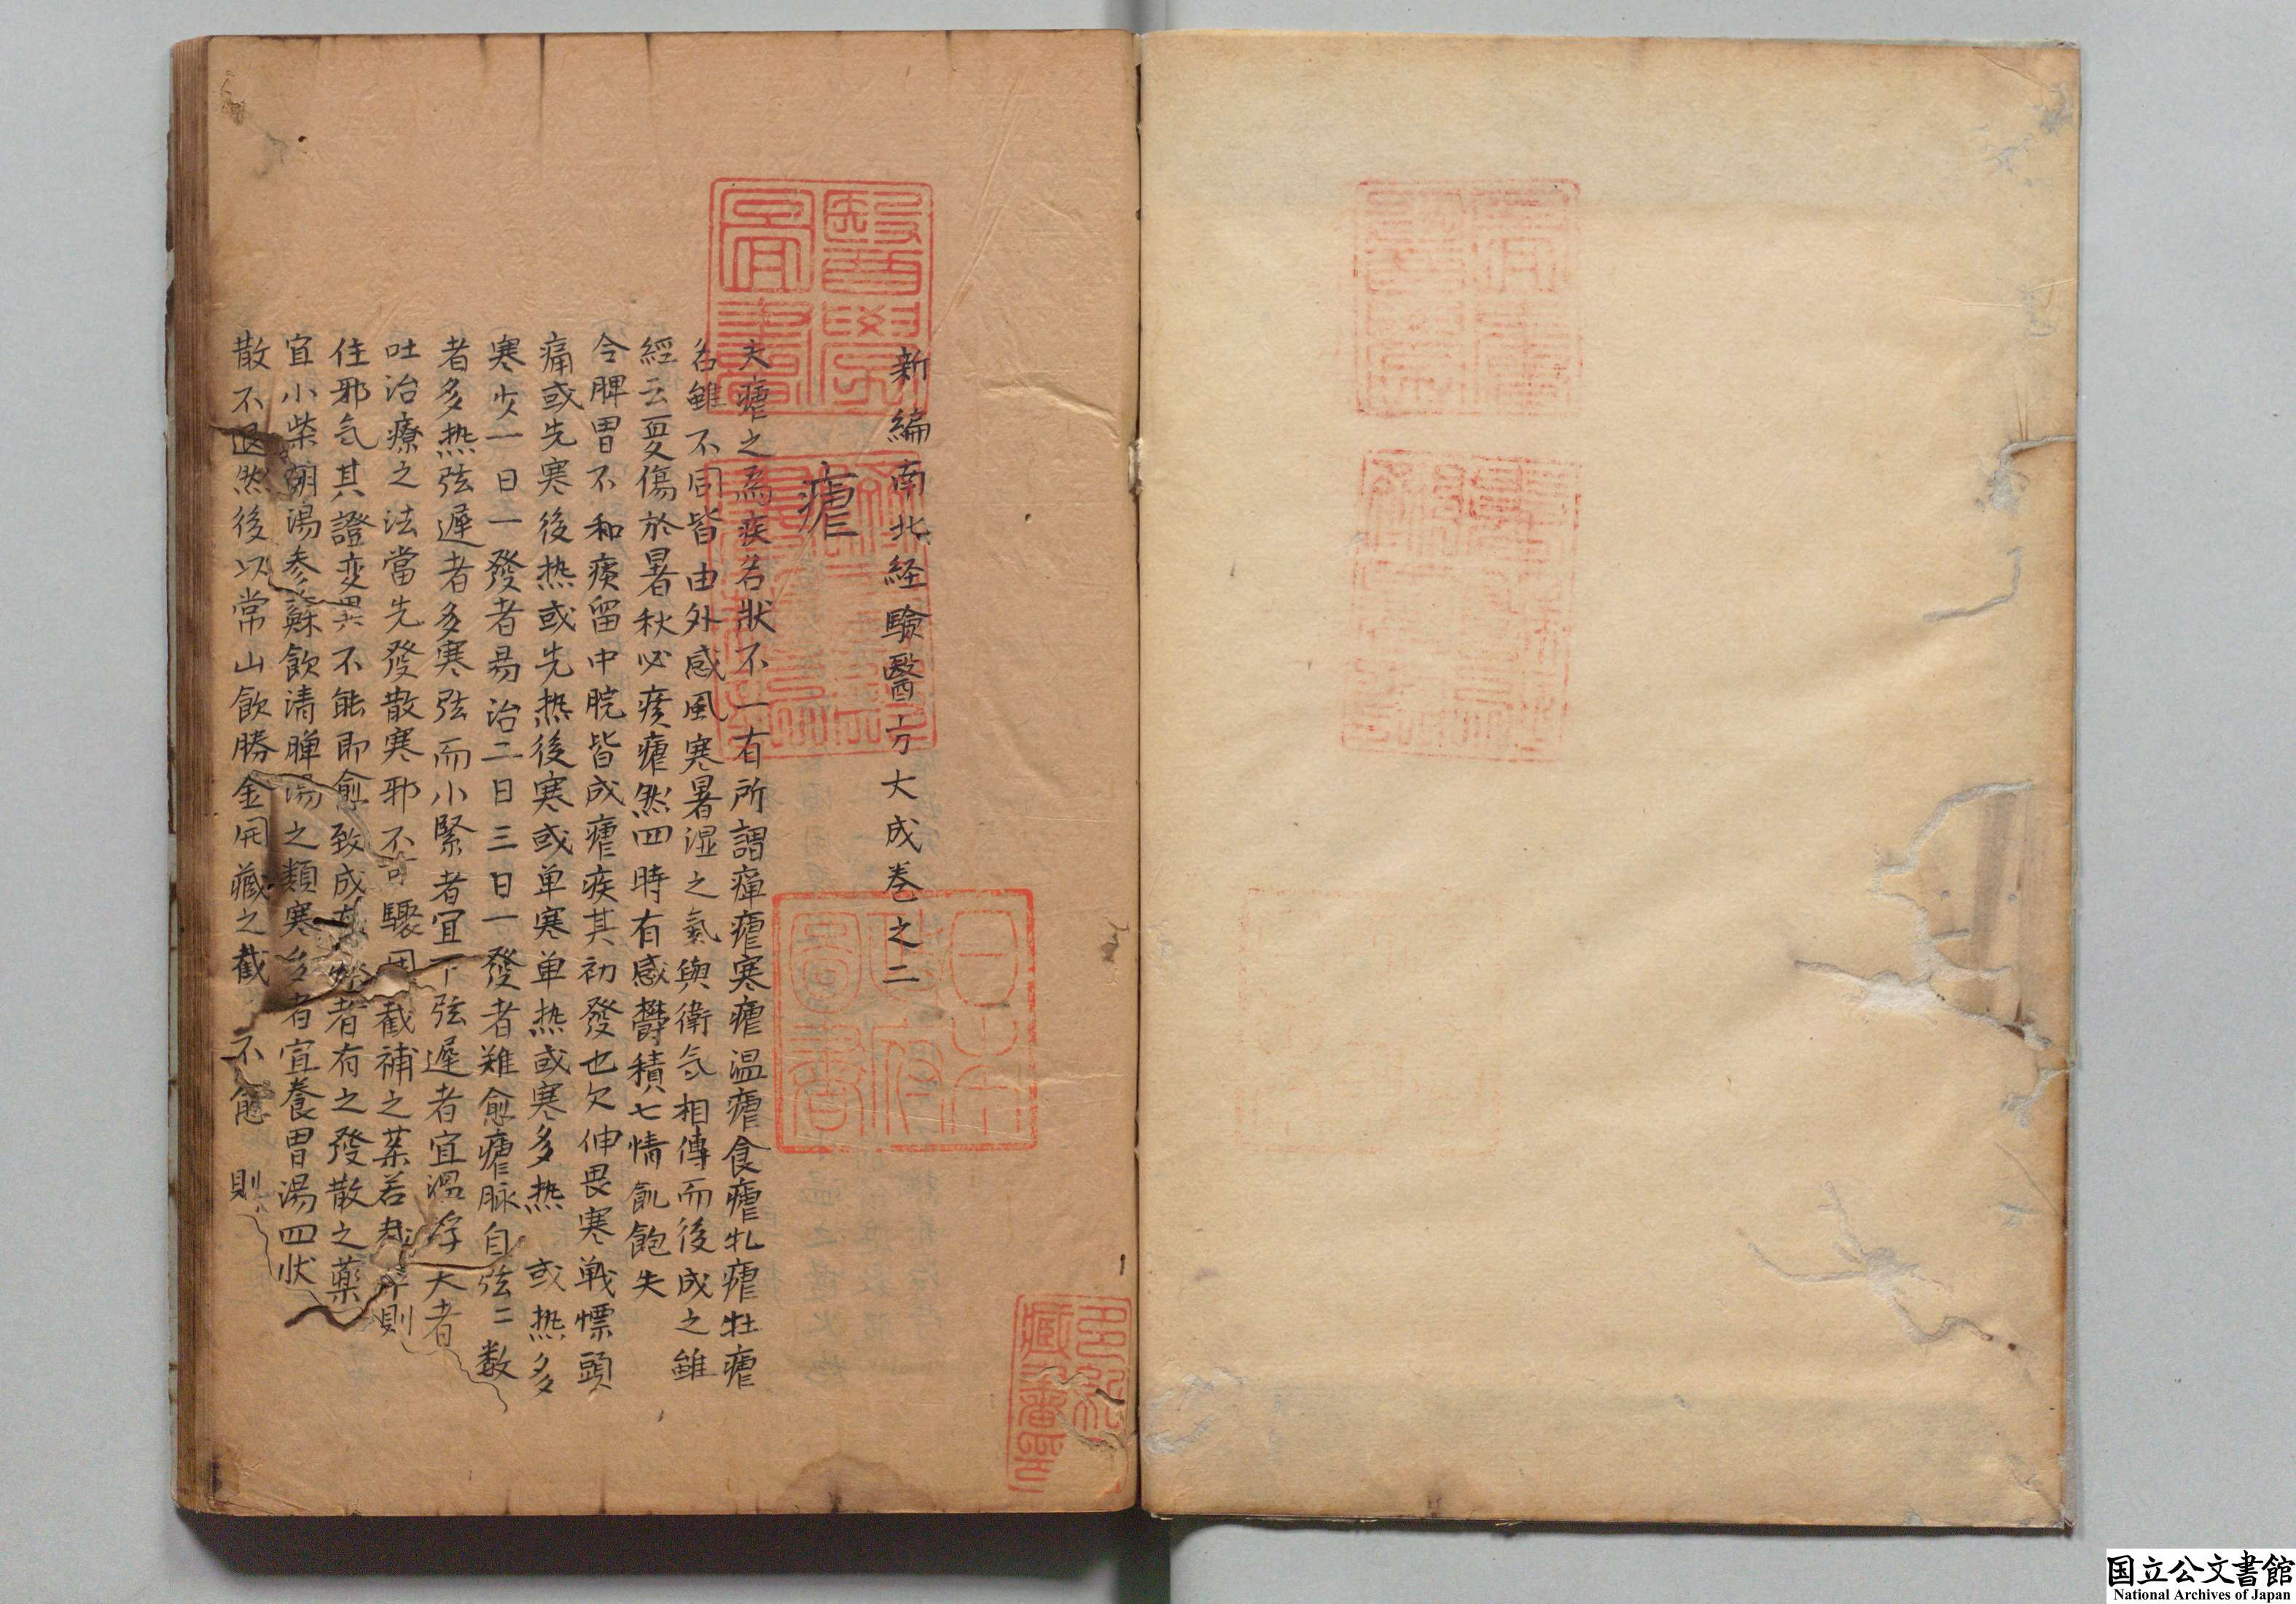 新編南北経驗醫方大成巻之二
瘧
夫瘧之為疾名狀不一有所謂瘅瘧寒瘧温瘧食瘧牝瘧牡瘧
名雖不同皆由外感風寒暑湿之氣與衛気相傳而後成之雖
經云夏傷於暑秋必痎瘧然四時有感欝積七情飢飽失
令脾胃不和痰留中脘皆成瘧疾其初發也欠伸畏寒戦慄頭
痛或先寒後热或先热後寒或单寒单热或寒多热或热多
寒少一日一發者易治二日三日一發者難愈瘧脉自弦ニ数
者多热弦遲者多寒弦而小緊者宜下弦遲者宜温浮大者
吐治療之法當先發散寒邪不可驟用截補之薬若截早則
住邪气其證変異不能即愈致成者有之發散之藥
宜小柴胡湯参蘇飲清脾湯之類寒多者宜養胃湯四状
散不退然後以常山飲勝金之截不愈則
醫學圖書
日本政府圖書
多紀氏藏書印
国立公文書館
National Archives of Japan